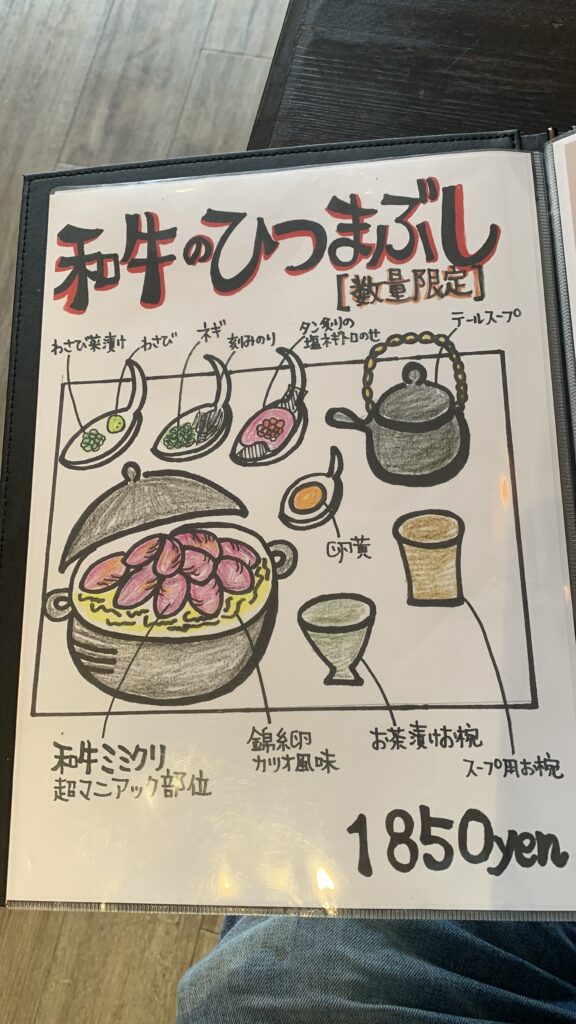 和牛のひつまぶし
[数量限定]
わさび菜漬け
わさび
ネギ
刻みのり
タン炙りの
塩ネギトロのせ
テールスープ
卵黄
和牛ミミクリ
超マニアック部位
錦糸卵
カツオ風味
お茶漬けお椀
スープ用お椀
1850yen